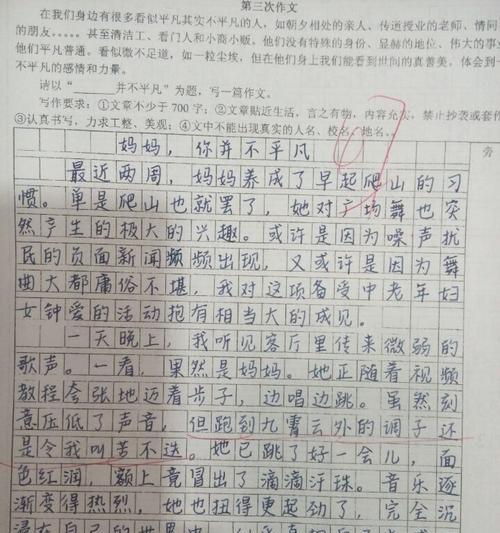 第三次作文
在我们身边有很多看似平凡其实不平凡的人，如朝夕相处的亲人、传道授业的老师、情同
的朋友。。。。。甚至清洁工、看门人和小商小贩。他们没有特殊的身份、显赫的地位、伟大的事
他们平凡普通。看似微不足道，如一粒尘埃，但在他们身上我们能看到世间的真善美，体会到一
不平凡的感情和力量。
请以“ ______并不平凡”为题，写一篇作文。
写作要求：①文章不少于700字；②文章贴近生活，言之有物，内容充实，禁止抄袭或套
③认真书写，力求工整、美观；④文中不能出现真实的人名、校名、地名。
旁
妈妈，你并不平凡
最近两周，妈妈养成了早起爬山的习
惯。单是爬山也就罢了，她对广场舞也突
然产生的极大的兴趣。或许是因为噪声扰
民的负面新闻频频出现，又或许是因为舞
曲大都庸俗不堪，我对这项备受中老年妇
女钟爱的活动抱有相当大的成见。
一天晚上，我听见客厅里传来微弱的
歌声。一看，果然是妈妈。她正随着视频
教程夸张地迈着步子，边唱边跳。虽然刻
意压低了声音，但跑到九霄云外的调子还
是令我叫苦不迭。她已跳了好一会儿，面
色红润，额上竟冒出了滴滴汗珠。音乐逐
渐变得热烈，她也扭得更起劲了，完全沉
浸在自己的世界中